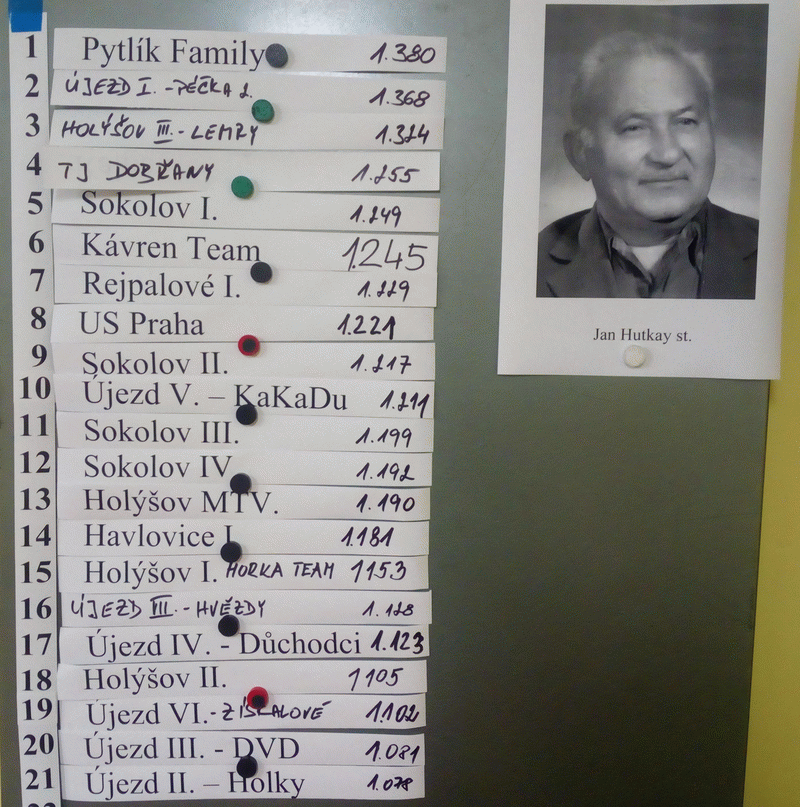 1 Pytlík Family 1.380
2 ÚJEZD I. - PÉČKA 1.368
3 HOLÝŠOV III. - LEMRY 1.324
4 TJ DOBŘANY 1.255
5 Sokolov I. 1.249
6 Kávren Team 1245
7 Rejpalové I. 1.229
8 US Praha 1.221
9 Sokolov II. 1.217
10 Újezd V. – KaKaDu 1.211
11 Sokolov III. 1.199
12 Sokolov IV. 1.192
13 Holýšov MTV. 1.190
14 Havlovice I. 1.181
15 Holýšov I. HORKA TEAM 1153
16 ÚJEZD VII. - HVĚZDY 1.128
17 Újezd IV. - Důchodci 1.123
18 Holýšov II. 1105
19 Újezd VI. - ZÍSKALOVÉ 1.102
20 Újezd III. - DVD 1.081
21 Újezd II. – Holky 1.078
Jan Hutkay st.